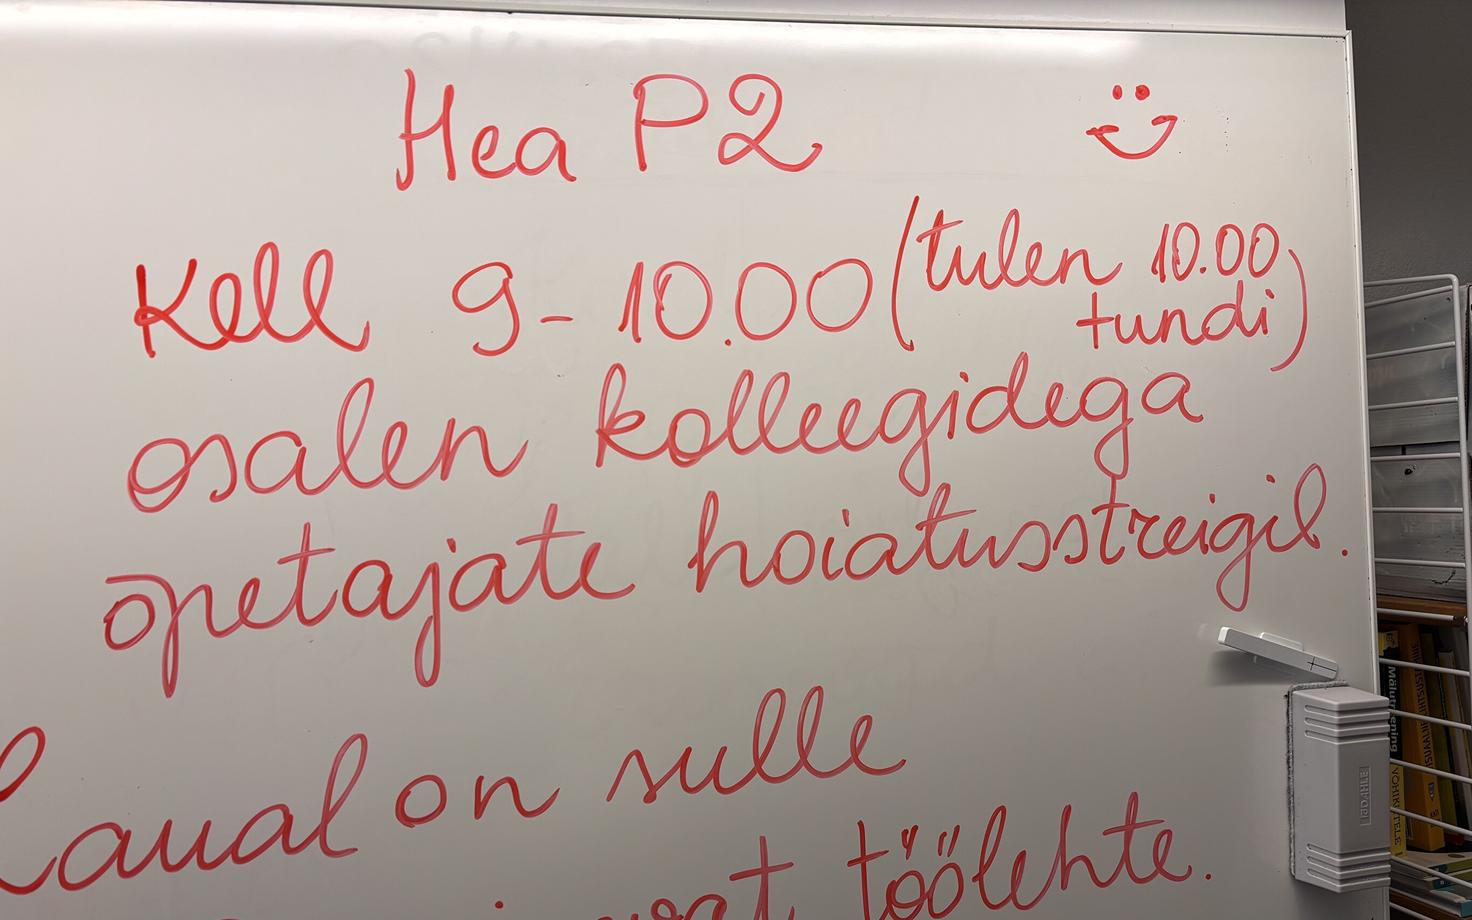 Hea P2
Kell 9 - 10.00 (tulen 10.00
tundi)
osalen kolleegidega
õpetajate hoiatusstreigil.
Laual on sulle
töölehte.
Mälutreening